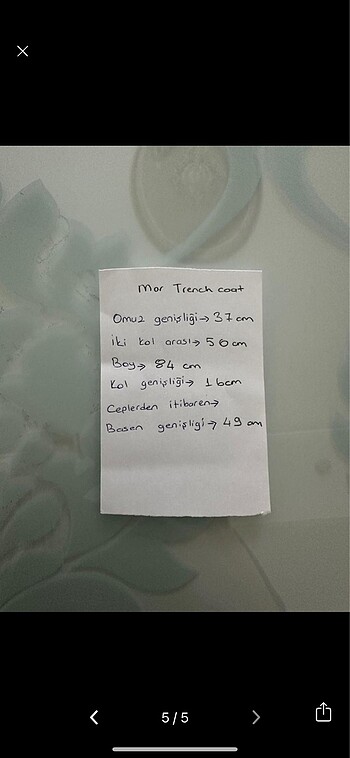 Mor Trench coat
Omuz genişliği→ 37 cm
İki kol arası→ 50 cm
Boy→ 84 cm
Kol genişliği→ 16cm
Ceplerden itibaren→
Basen genişligi→ 49 cm
5/5